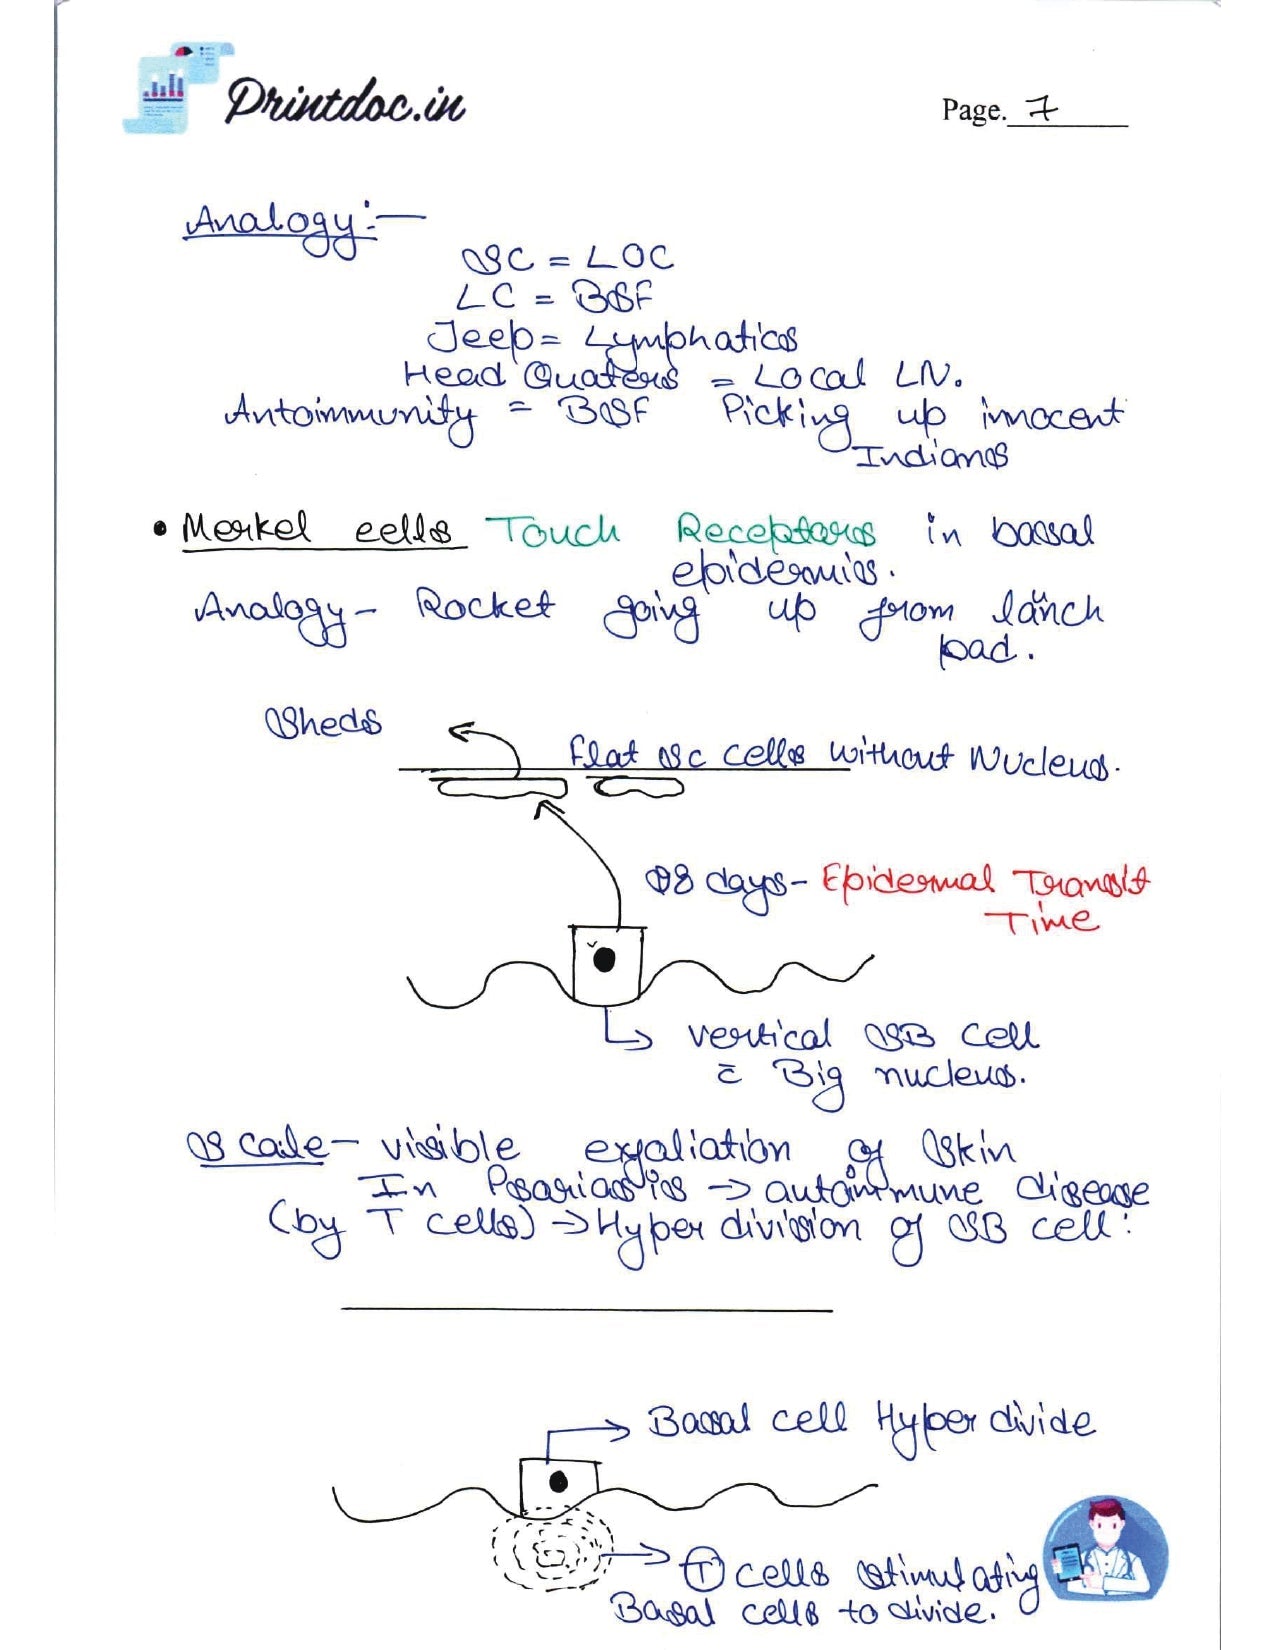 Printdoc.in
Page. 7
Analogy:-
SC = LOC
LC = BSF
Jeep = Lymphatics
Head Quaters = Local LN.
Autoimmunity = BSF Picking up innocent
Indians
• Merkel cells Touch Receptors in basal
epidermis.
Analogy - Rocket going up from lanch
pad.
Sheds
flat SC cells without Nucleus.
days - Epidermal Transit
Time
vertical SB cell
c̄ Big nucleus.
Scale - visible exfoliation of skin
In Psoriasis → autoimmune disease
(by T cells) → Hyper division of SB cell:
Basal cell Hyper divide
T cells stimulating
Basal cells to divide.